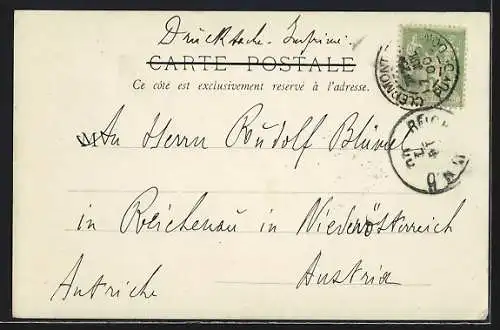 Drucksache. Imprimé.
CARTE POSTALE
Ce côté est exclusivement reservé à l'adresse.
An Herrn Rudolf Blüml
in Reichenau in Niederösterreich
Autriche Austria
CLERMONT
REICH